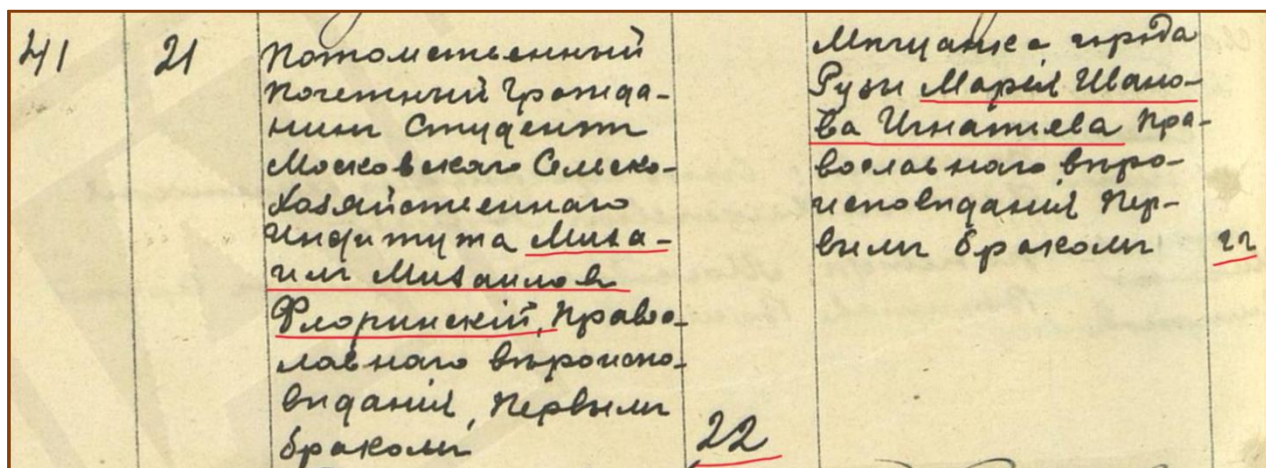 41
21
Потомственный
Почетный Гражда-
нинъ Студентъ
Московскаго Сельско-
Хозяйственнаго
Института Миха-
илъ Михаиловъ
Флоринскій, Право-
славнаго вѣроиспо-
вѣданія, Первымъ
бракомъ
22
Мѣщанка города
Рузы Марія Ивано-
ва Игнатьева Пра-
вославнаго вѣро-
исповѣданія Пер-
вымъ бракомъ
22